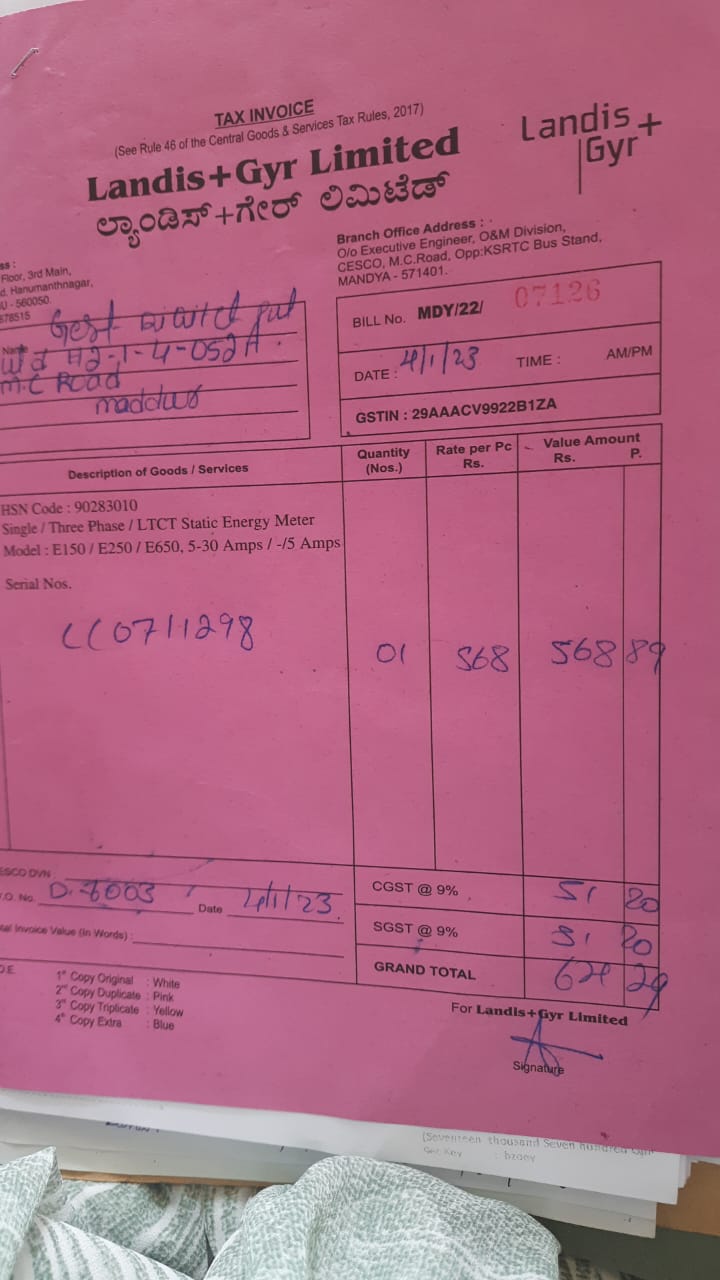 TAX INVOICE
(See Rule 46 of the Central Goods & Services Tax Rules, 2017)
Landis+Gyr Limited
ಲ್ಯಾಂಡಿಸ್+ಗೇರ್ ಲಿಮಿಟೆಡ್
Landis+
Gyr
Branch Office Address :
O/o Executive Engineer, O&M Division,
CESCO, M.C.Road, Opp:KSRTC Bus Stand,
MANDYA - 571401.
ss :
Floor, 3rd Main,
d. Hanumanthnagar,
U - 560050.
878515
Name
M.C Road
maddur
BILL No. MDY/22/ 07126
DATE : 4/1/23 TIME : AM/PM
GSTIN : 29AAACV9922B1ZA
Description of Goods / Services
Quantity (Nos.)
Rate per Pc Rs.
Value Amount Rs. P.
HSN Code : 90283010
Single / Three Phase / LTCT Static Energy Meter
Model : E150 / E250 / E650, 5-30 Amps / -/5 Amps
Serial Nos.
CC0711298 01 568 568 89
ESCO DVN
.O. No. D. 6003 Date 4/1/23
tal Invoice Value (in Words) :
CGST @ 9% 51 20
SGST @ 9% 51 20
GRAND TOTAL 29
O.E.
1st Copy Original : White
2nd Copy Duplicate : Pink
3rd Copy Triplicate : Yellow
4th Copy Extra : Blue
For Landis+Gyr Limited
Signature
(Seventeen thousand Seven hundred